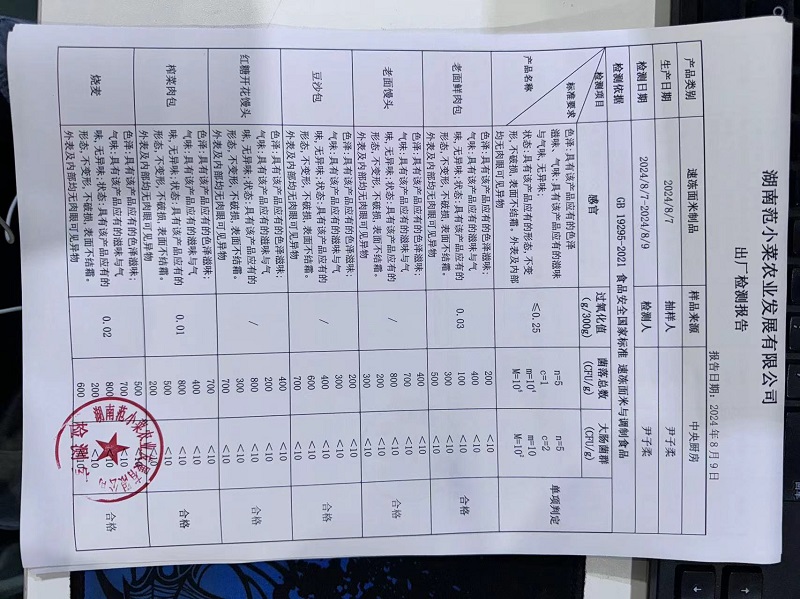 湖南范小菜农业发展有限公司
出厂检测报告
报告日期：2024年8月9日
产品类别 速冻面米制品 样品来源 中央厨房
生产日期 2024/8/7 抽样人 尹子柔
检测日期 2024/8/7-2024/8/9 检测人 尹子柔
检测依据 GB 19295-2021 食品安全国家标准 速冻面米与调制食品
检测项目 感官 过氧化值 菌落总数 大肠菌群 单项判定
(g/100g) (CFU/g) (CFU/g)
标准要求
产品名称
色泽:具有该产品应有的色泽
滋味、气味:具有该产品应有的滋味
与气味,无异味;
状态:具有该产品应有的形态,不变
形,不破损,表面不结霜。外表及内部
均无肉眼可见异物
≤0.25
n=5
c=1
m=10⁴
M=10⁵
n=5
c=2
m=10
M=10²
老面鲜肉包
色泽:具有该产品应有的色泽滋味;
气味:具有该产品应有的滋味与气
味,无异味;状态:具有该产品应有的
形态,不变形,不破损,表面不结霜。
外表及内部均无肉眼可见异物
0.03
200 <10
400 <10
100 <10
300 <10
500 <10
合格
老面馒头
色泽:具有该产品应有的色泽滋味;
气味:具有该产品应有的滋味与气
味,无异味;状态:具有该产品应有的
形态,不变形,不破损,表面不结霜。
外表及内部均无肉眼可见异物
/
400 <10
700 <10
800 <10
200 <10
300 <10
合格
豆沙包
色泽:具有该产品应有的色泽滋味;
气味:具有该产品应有的滋味与气
味,无异味;状态:具有该产品应有的
形态,不变形,不破损,表面不结霜。
外表及内部均无肉眼可见异物
/
200 <10
300 <10
400 <10
600 <10
700 <10
合格
红糖开花馒头
色泽:具有该产品应有的色泽滋味;
气味:具有该产品应有的滋味与气
味,无异味;状态:具有该产品应有的
形态,不变形,不破损,表面不结霜。
外表及内部均无肉眼可见异物
/
400 <10
200 <10
800 <10
300 <10
700 <10
合格
榨菜肉包
色泽:具有该产品应有的色泽滋味;
气味:具有该产品应有的滋味与气
味,无异味;状态:具有该产品应有的
形态,不变形,不破损,表面不结霜。
外表及内部均无肉眼可见异物
0.01
700 <10
400 <10
800 <10
500 <10
200 <10
合格
烧麦
色泽:具有该产品应有的色泽滋味;
气味:具有该产品应有的滋味与气
味,无异味;状态:具有该产品应有的
形态,不变形,不破损,表面不结霜。
外表及内部均无肉眼可见异物
0.02
500 <10
700 <10
800 <10
200 <10
600 <10
合格
湖南范小菜农业发展有限公司
检测